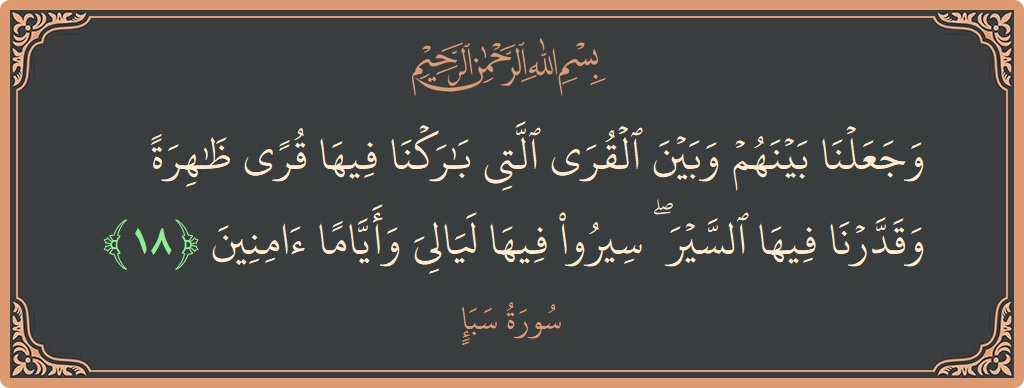 بِسْمِ اللَّهِ الرَّحْمَٰنِ الرَّحِيمِ
وَجَعَلْنَا بَيْنَهُمْ وَبَيْنَ ٱلْقُرَى ٱلَّتِى بَـٰرَكْنَا فِيهَا قُرًى ظَـٰهِرَةً
وَقَدَّرْنَا فِيهَا ٱلسَّيْرَ ۖ سِيرُوا۟ فِيهَا لَيَالِىَ وَأَيَّامًا ءَامِنِينَ ﴿١٨﴾
سُورَةُ سَبَإٍ